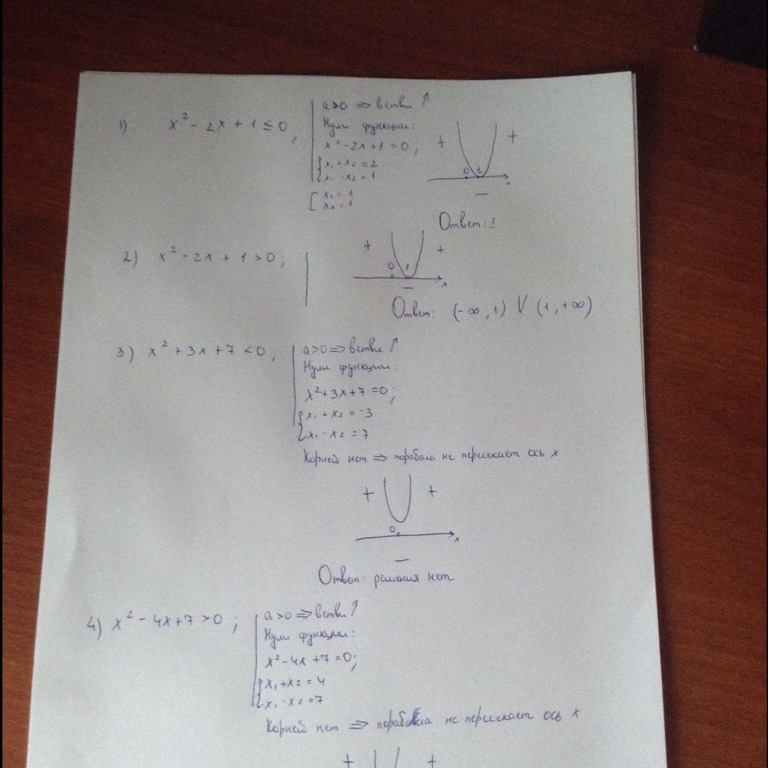 1) x² - 2x + 1 ≤ 0;
a>0 ⇒ ветви ↑
Нули функции:
x² - 2x + 1 = 0;
{ x₁ + x₂ = 2
{ x₁ · x₂ = 1
[ x₁ = 1
x₂ = 1
+ +
0 1 x
−
Ответ: 1
2) x² - 2x + 1 > 0;
+ +
0 1 x
−
Ответ: (-∞, 1) V (1, +∞)
3) x² + 3x + 7 < 0;
a>0 ⇒ ветви ↑
Нули функции:
x² + 3x + 7 = 0;
{ x₁ + x₂ = -3
{ x₁ · x₂ = 7
Корней нет ⇒ парабола не пересекает ось x
+ +
0 x
−
Ответ: решения нет
4) x² - 4x + 7 > 0;
a>0 ⇒ ветви ↑
Нули функции:
x² - 4x + 7 = 0;
{ x₁ + x₂ = 4
{ x₁ · x₂ = 7
Корней нет ⇒ парабола не пересекает ось x
+ +